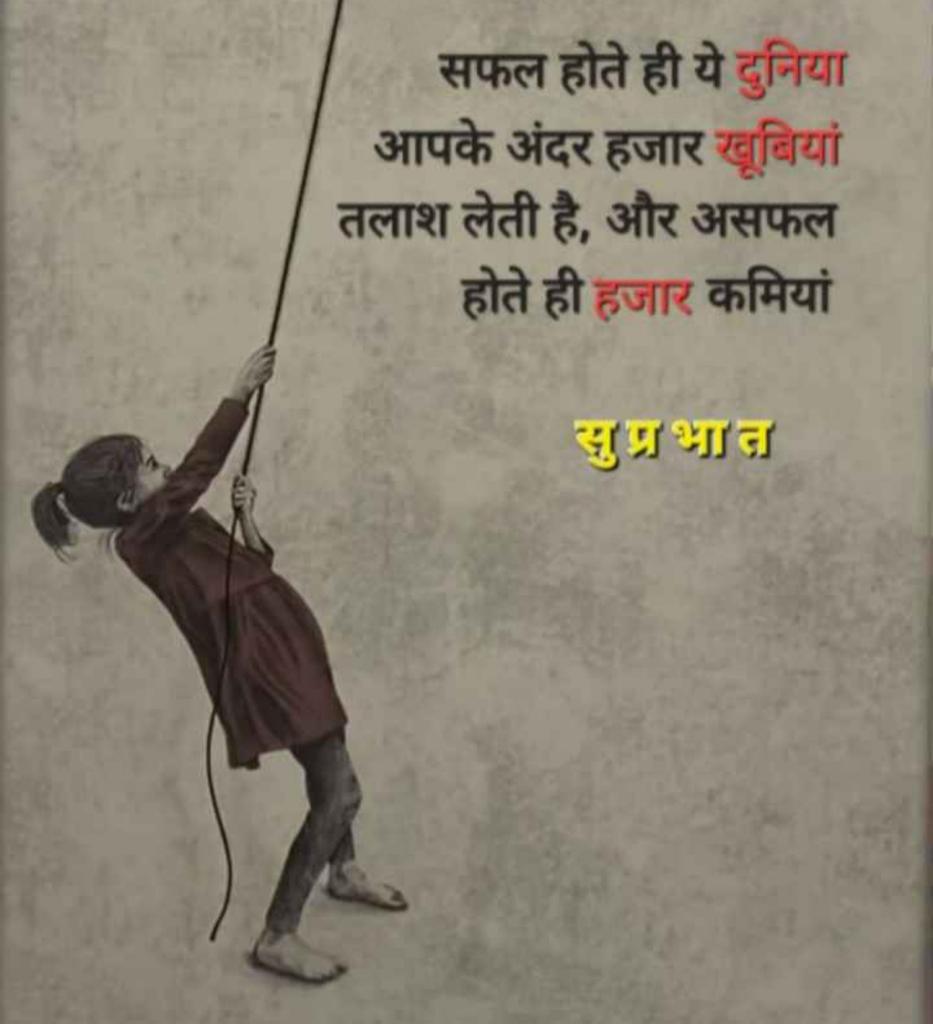 सफल होते ही ये दुनिया
आपके अंदर हजार खूबियां
तलाश लेती है, और असफल
होते ही हजार कमियां
सुप्रभात